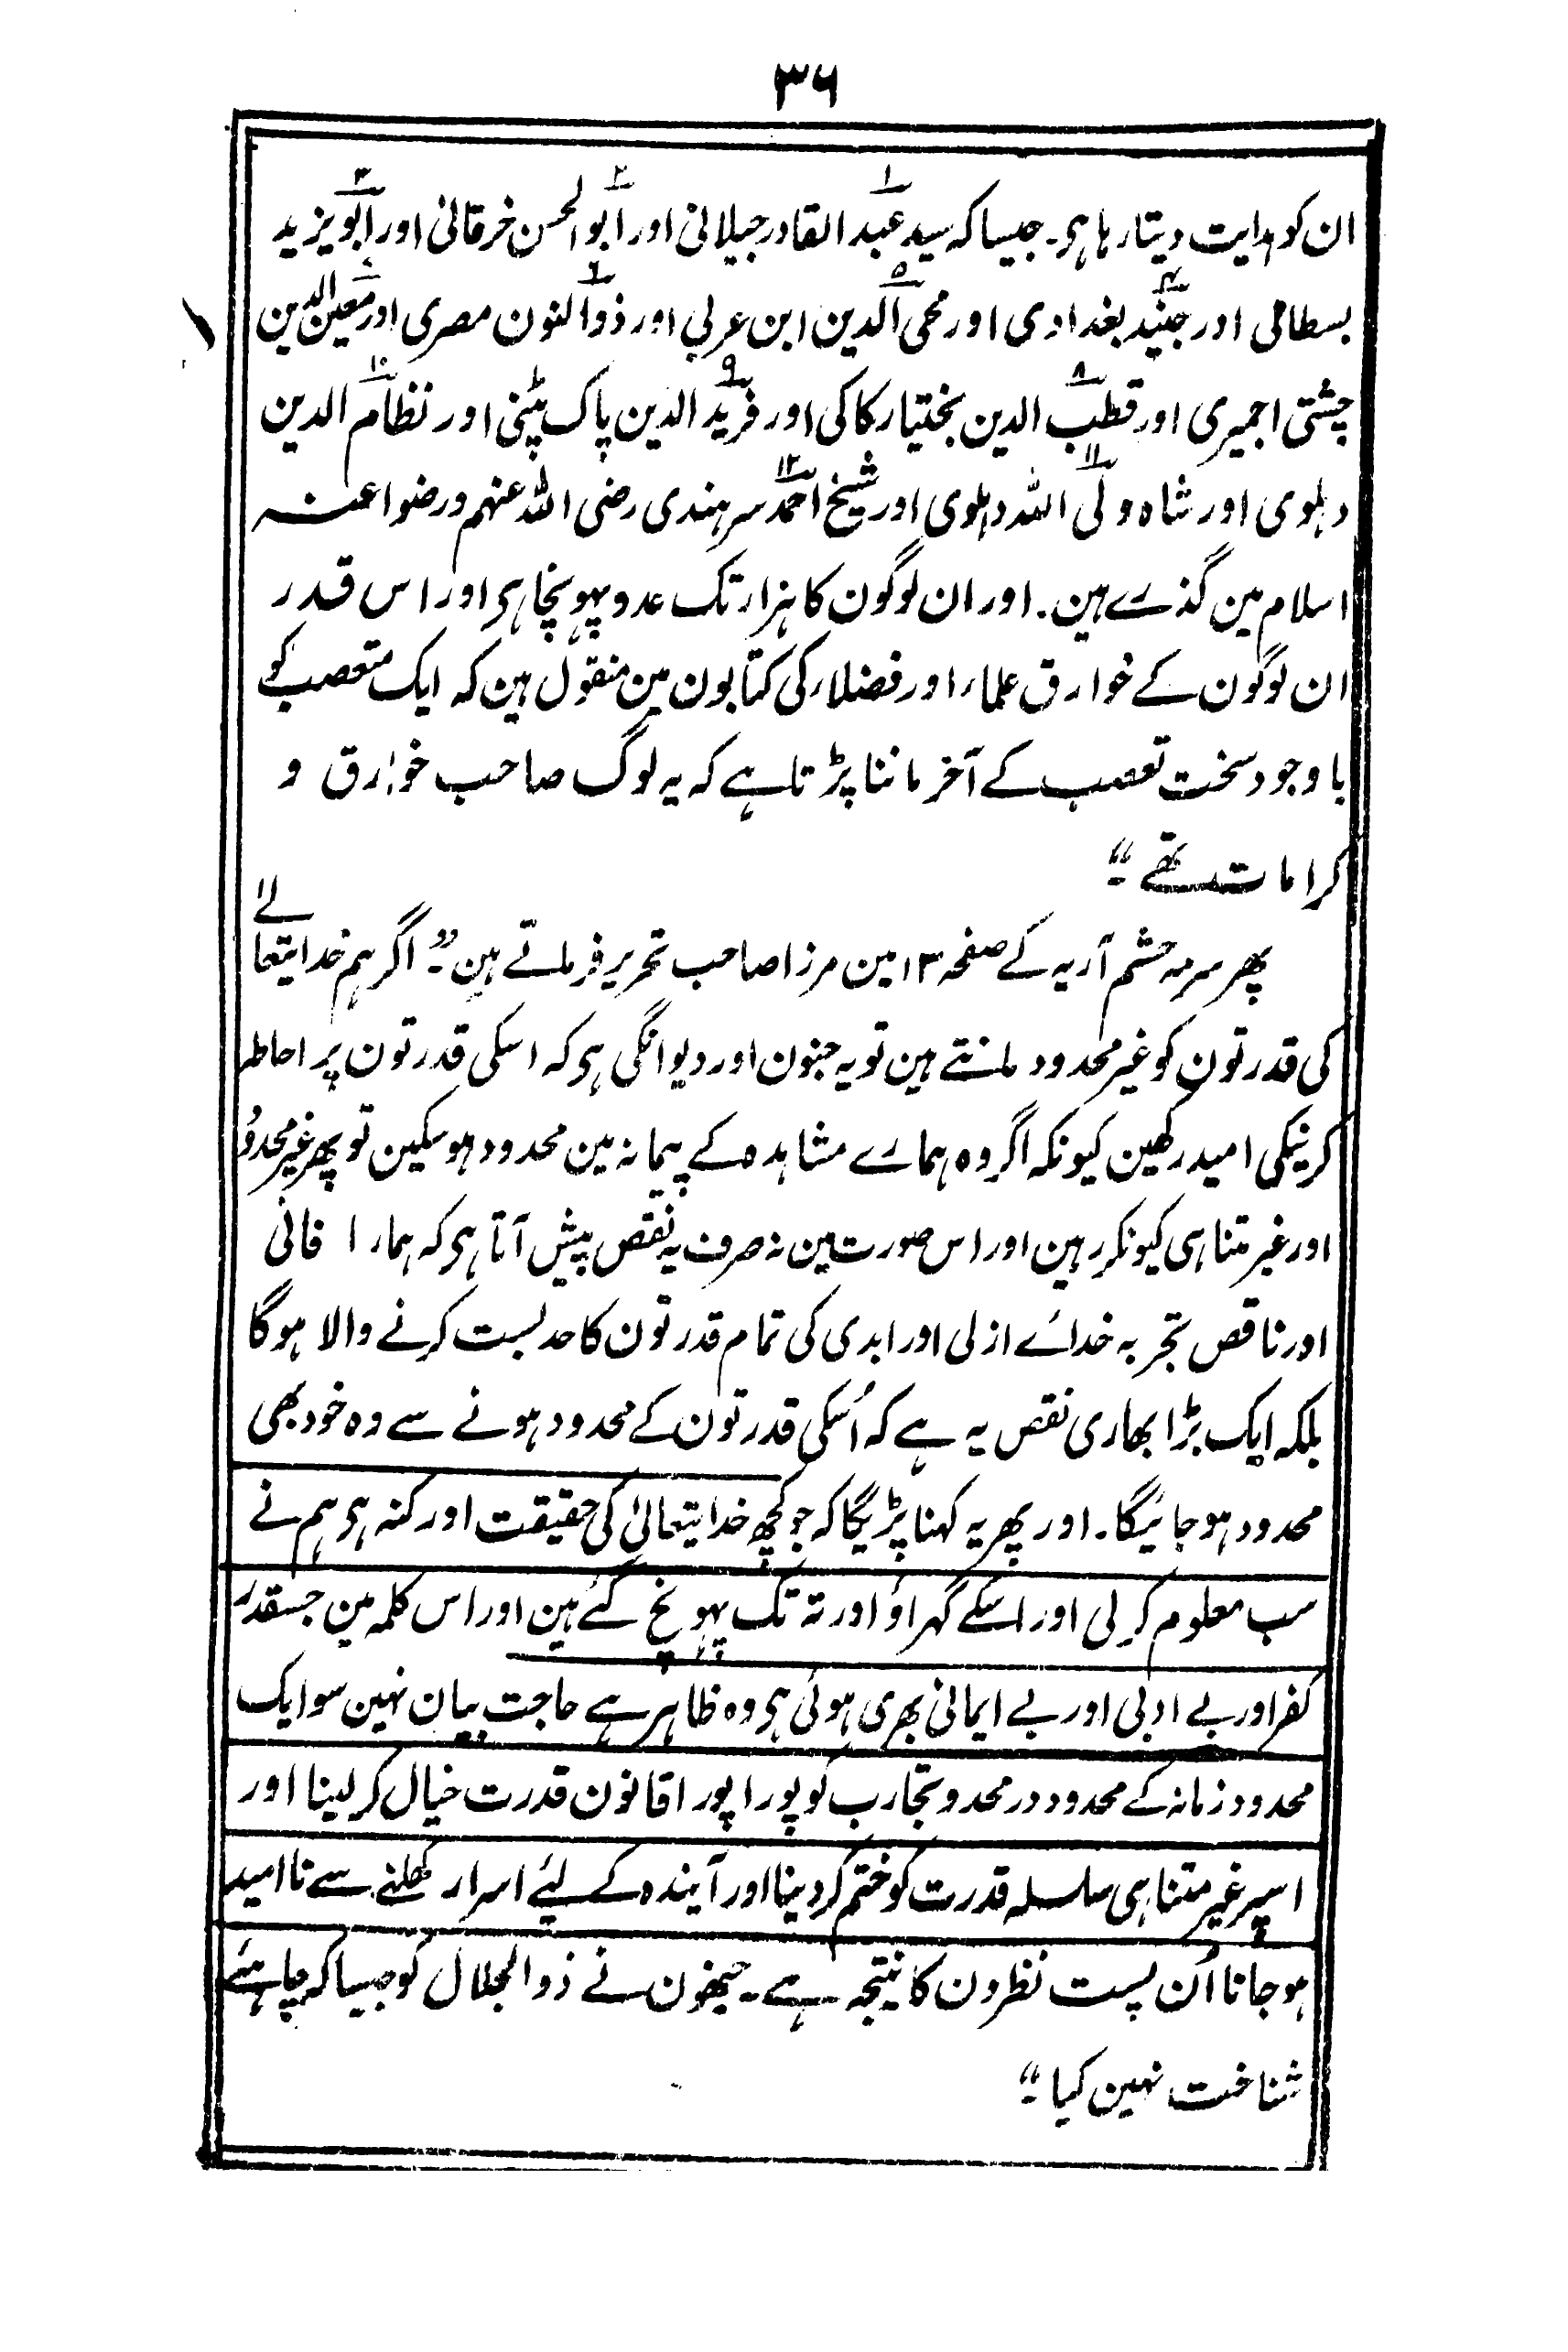 ۳۶
ان کو ہدایت دیتا رہا ہی۔ جیسا کہ سید عبد القادر جیلانی اور ابو الحسن خرقانی اور ابو یزید
بسطامی اور جنید بغدادی اور محی الدین ابن عربی اور ذوالنون مصری اور معین الدین
چشتی اجمیری اور قطب الدین بختیار کاکی اور فرید الدین پاک پٹنی اور نظام الدین
دہلوی اور شاہ ولی اللہ دہلوی اور شیخ احمد سرہندی رضی اللہ عنہم ورضوا عنہ
اسلام مین گذرے ہین۔ اور ان لوگون کا ہزار تک عدد پہونچا ہی اور اس قدر
ان لوگون کے خوارق علماء اور فضلاء کی کتابون مین منقول ہین کہ ایک متعصب کو
با وجود سخت تعصب کے آخر ماننا پڑتا ہے کہ یہ لوگ صاحب خوارق و
کرامات تھے“
پھر سرمہ چشم آریہ کے صفحہ ۱۳ مین مرزا صاحب تحریر فرماتے ہین۔” اگر ہم خدایتعالے
کی قدرتون کو غیر محدود مانتے ہین تو یہ جنون اور دیوانگی ہی کہ اسکی قدرتون پر احاطہ
کرنیکی امید رکھین کیونکہ اگر وہ ہمارے مشاہدہ کے پیمانہ مین محدود ہو سکین تو پھر غیر محدود
اور غیر متناہی کیونکر رہین اور اس صورت مین نہ صرف یہ نقص پیش آتا ہی کہ ہمارا فانی
اور ناقص تجربہ خدائے ازلی اور ابدی کی تمام قدرتون کا حد بست کرنے والا ہوگا
بلکہ ایک بڑا بھاری نقص یہ ہے کہ اُسکی قدرتون کے محدود ہونے سے وہ خود بھی
محدود ہو جائیگا۔ اور پھر یہ کہنا پڑیگا کہ جو کچھ خدایتعالیٰ کی حقیقت اور کنہ ہی ہم نے
سب معلوم کر لی اور اسکے گہراؤ اور تہ تک پہونچ گئے ہین اور اس کلمہ مین جسقدر
کفر اور بے ادبی اور بے ایمانی بھری ہوئی ہی وہ ظاہر ہے حاجت بیان نہین سو ایک
محدود زمانہ کے محدود در محدو تجارب کو پورا پورا قانون قدرت خیال کر لینا اور
اسپر غیر متناہی سلسلہ قدرت کو ختم کر دینا اور آیندہ کے لیئے اسرار کھلنے سے ناامید
ہو جانا اُن پست نظرون کا نتیجہ ہے۔ جنھون نے ذو الجلال کو جیسا کہ چاہئے
شناخت نہین کیا“